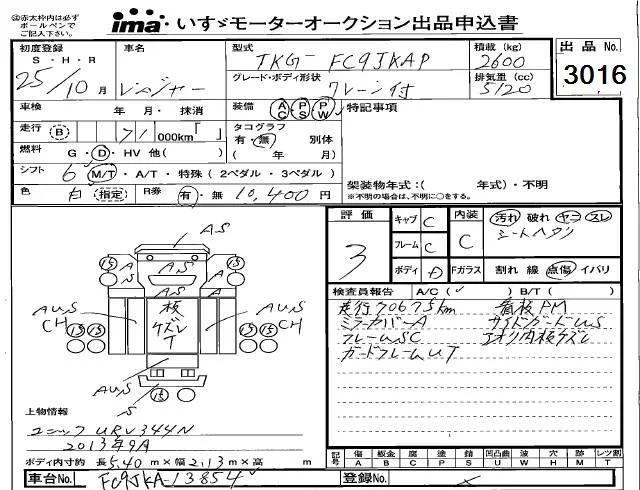 ㊟赤太枠内は必ず
ボールペンで
ご記入下さい。
ima いすゞモーターオークション出品申込書
初度登録 車名 型式 TKG- FC9JKAP 積載(kg) 2600 出品No.
S・H・R
25/10月 レンジャー グレード・ボディ形状 クレーン付 排気量(cc) 5120 3016
車検 年・月・抹消 装備 AC PS PW 特記事項
走行 B 71 000km「 」 タコグラフ
有・無 別体
燃料 G・D・HV 他( ) ( 年 月)
シフト 6 M/T・A/T・特殊(2ペダル・3ペダル)
架装物年式:( 年式)・不明
色 白 指定 R券 有・無 10,400円 ※不明の場合は、不明に○をする。
評価 3 キャブ C 内装 C 汚れ 破れ ヤニ スレ
シートヘタリ
フレーム C
ボディ D Fガラス 割れ 線 点傷 イバリ
検査員報告 A/C(✓) B/T( )
走行70675km 看板PM
ミラーカバーA サイドガードUS
フレームSC エオリ内板ケズレ
ガードフレームUT
A.S
15 A A.S A 15
S A.S S
AUS CH 15 15 板ケズレT 15 15 AUS CH
AUS
S 15
上物情報
ユニック URV344N
2013年9A
ボディ内寸約 長5.40m×幅2.13m×高 m
記号 傷 板金 腐 塗 錆 凹凸曲 波 穴 跡 レツ割
A B C P S U W H M T
車台No. FC9JKA-13854 登録No.